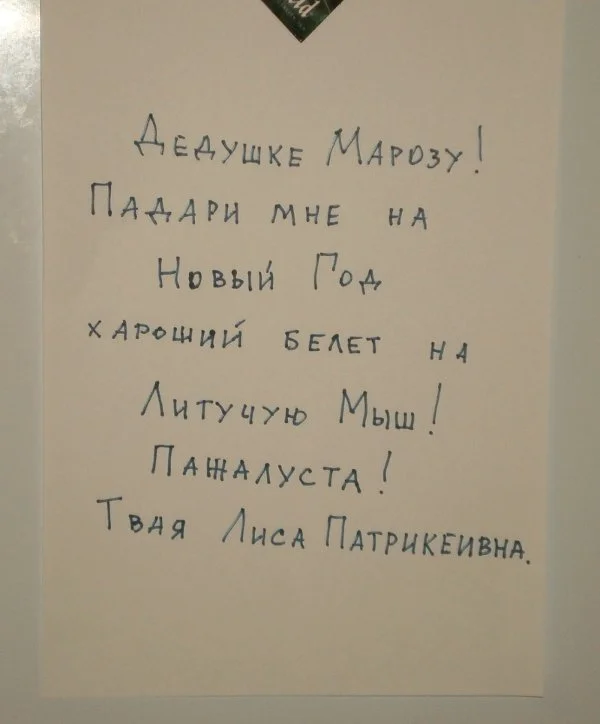 Дедушке Марозу!
Падари мне на
Новый Год
хароший белет на
Литучую Мыш!
Пажалуста!
Твая Лиса Патрикеивна.